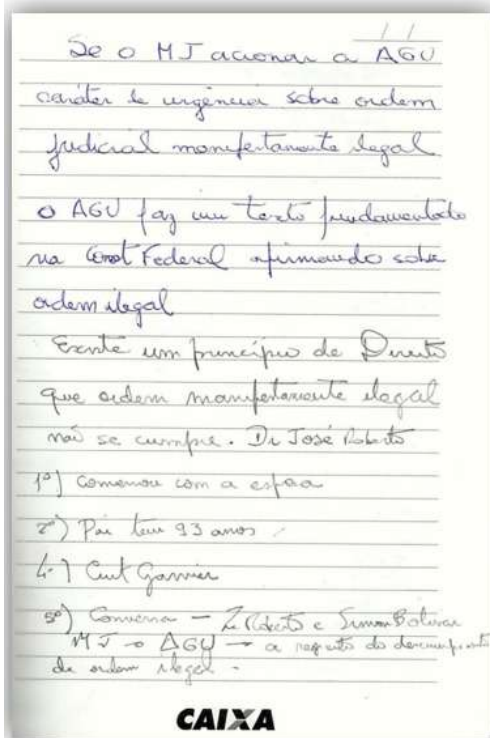 / /
Se o MJ acionar a AGU
caráter de urgência sobre ordem
judicial manifestamente ilegal
O AGU faz um texto fundamentado
na Const Federal afirmando sobre
ordem ilegal
Existe um princípio de Direito
que ordem manifestamente ilegal
não se cumpre. Dr José Roberto
1º) Comenou com a
2º) Pai tem 93 anos
4-) Cmt Garnier
5º) Conversa — Zé Roberto e Simon Bolivar
MJ → AGU → a respeito do
de ordem ilegal -
CAIXA